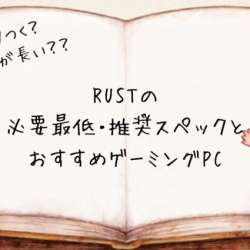 つく?
が長い??
RUSTの
必要最低・推奨スペックと
おすすめゲーミングPC